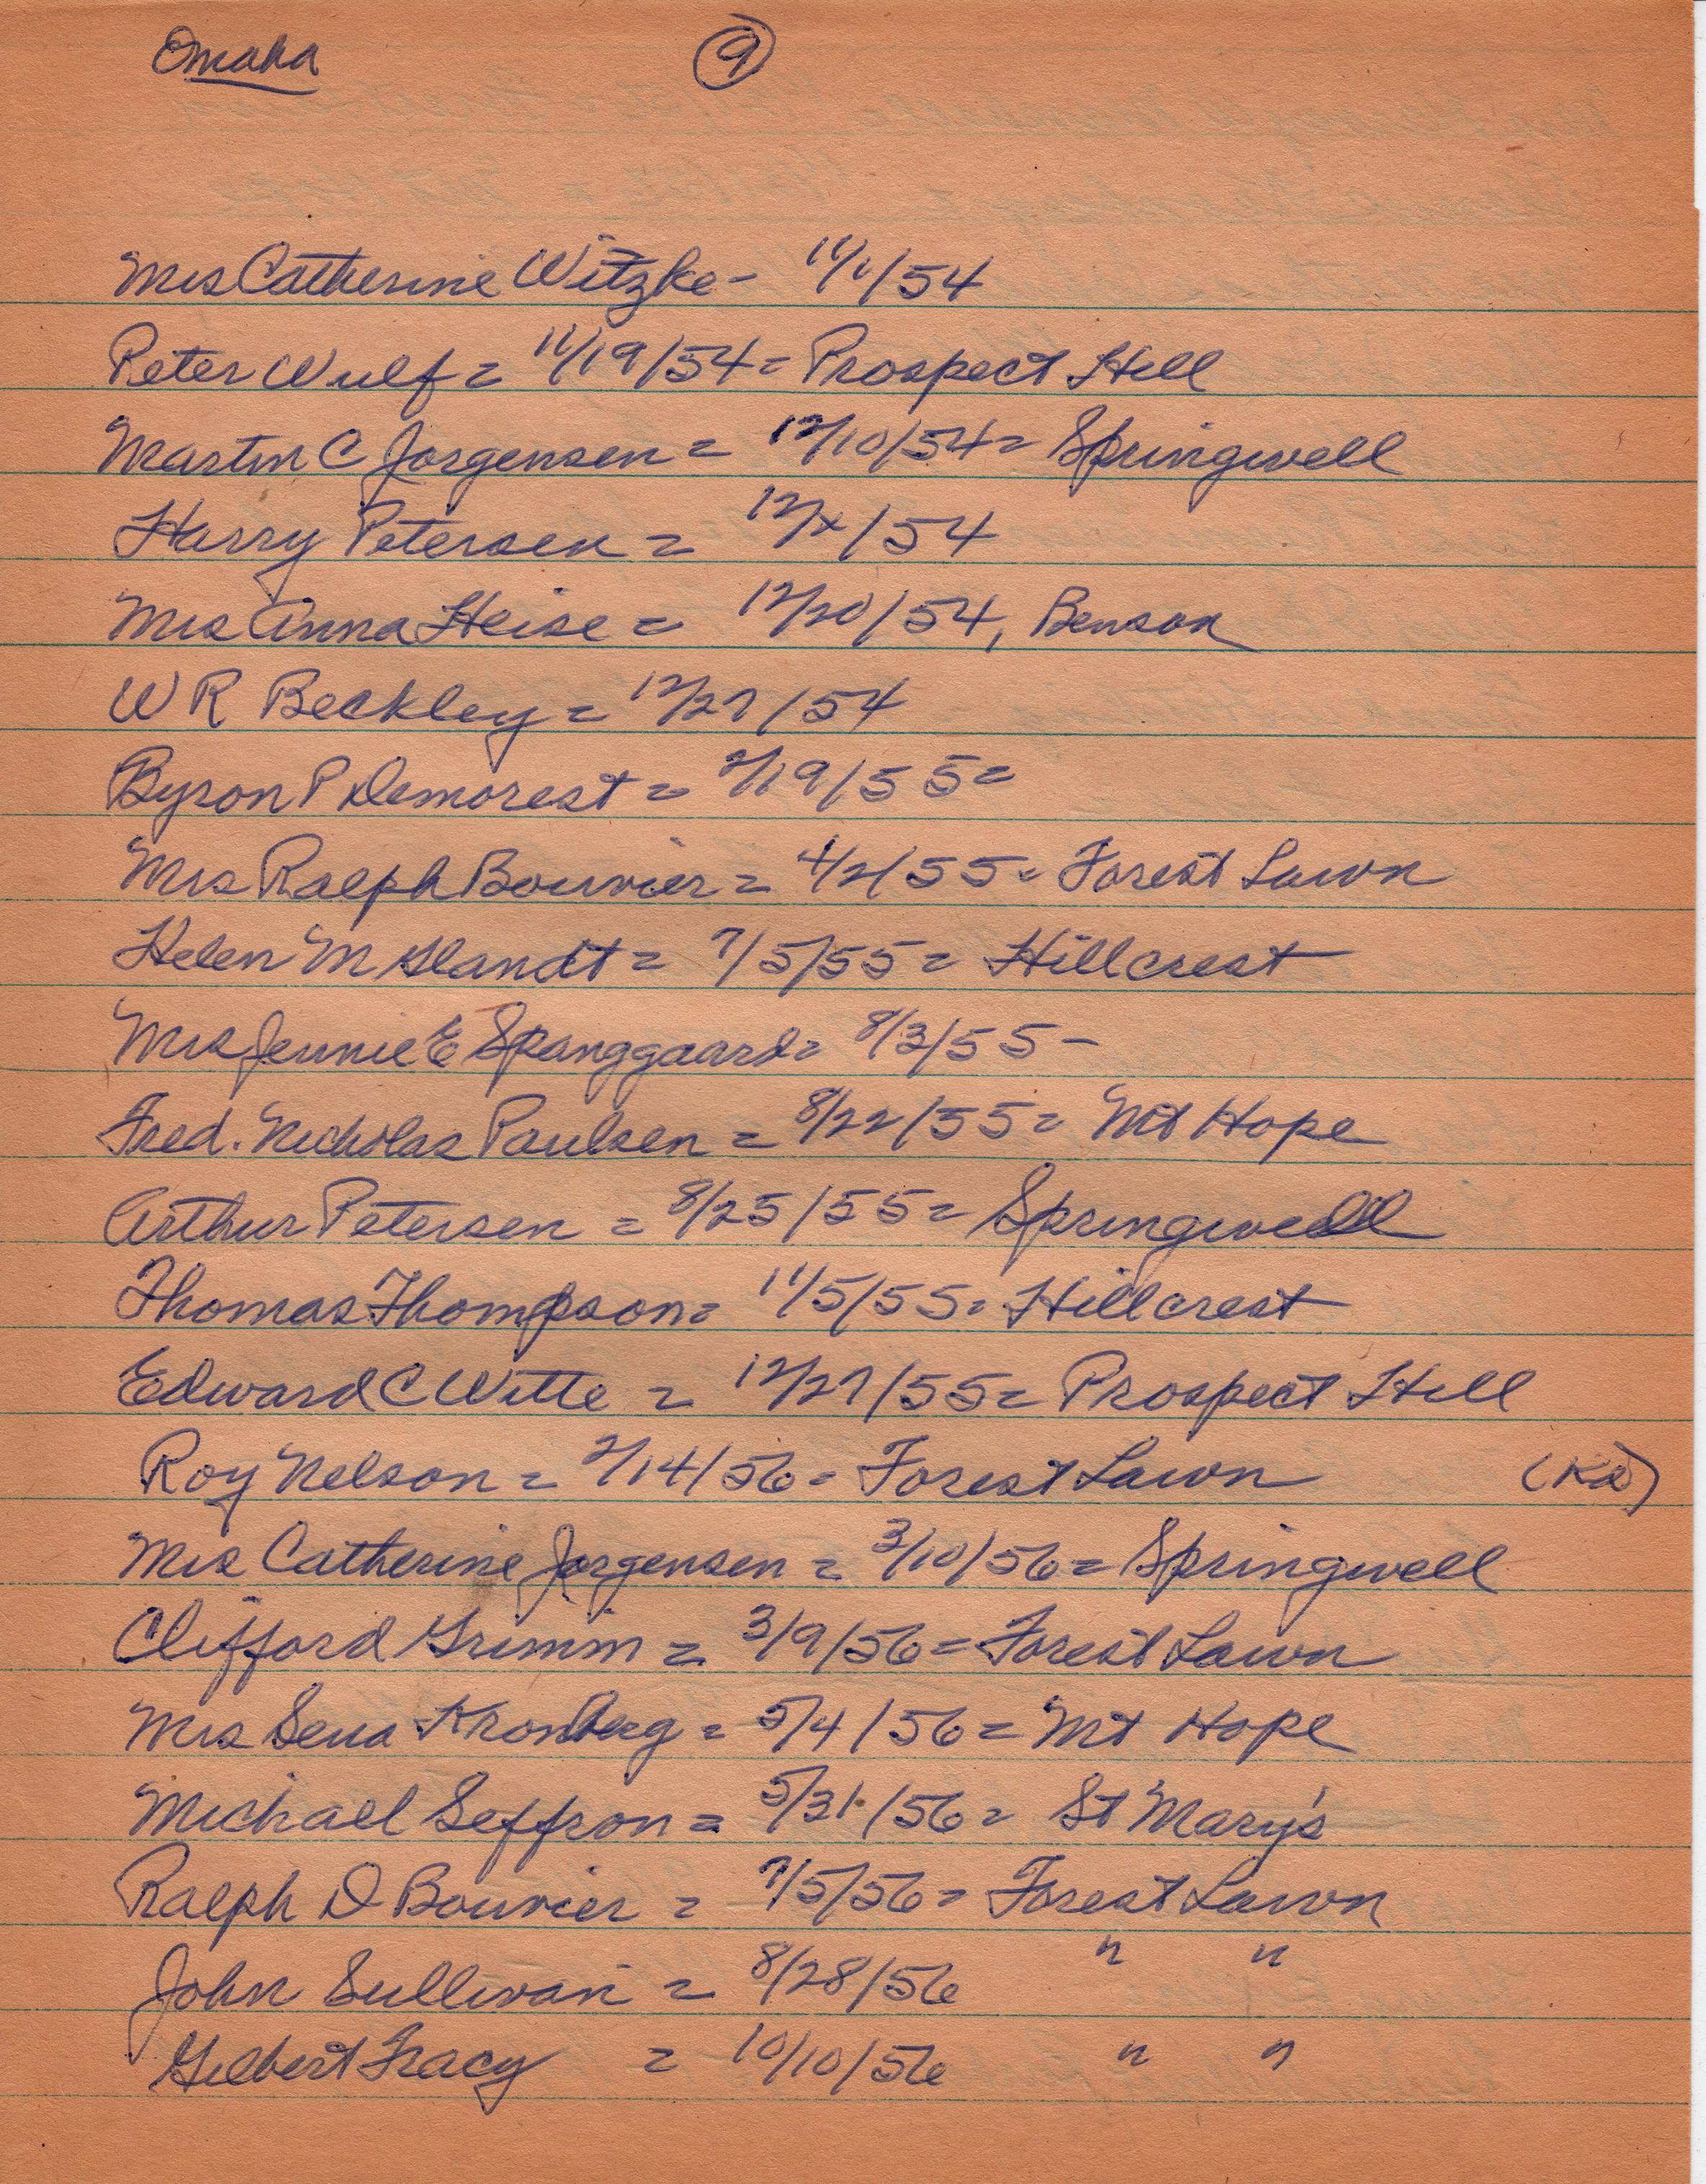 Omaha 9
Mrs Catherine Witzke - 11/1/54
Peter Wulf = 11/19/54 = Prospect Hill
Martin C Jorgensen = 12/10/54 = Springwell
Harry Petersen = 12/x/54
Mrs Anna Heise = 12/20/54, Benson
W R Beckley = 12/27/54
Byron P Demorest = 2/19/55 =
Mrs Ralph Bouvier = 4/2/55 = Forest Lawn
Helen M Glandt = 7/5/55 = Hillcrest
Mrs Jennie E Spanggaard = 8/3/55 -
Fred. Nicholas Paulsen = 8/22/55 = Mt Hope
Arthur Petersen = 8/25/55 = Springwell
Thomas Thompson = 11/5/55 = Hillcrest
Edward C Witte = 12/27/55 = Prospect Hill
Roy Nelson = 2/14/56 = Forest Lawn
Mrs Catherine Jorgensen = 3/10/56 = Springwell
Clifford Grimm = 3/9/56 = Forest Lawn
Mrs Sena Kronberg = 5/4/56 = Mt Hope
Michael Seffron = 5/31/56 = St Mary's
Ralph D Bouvier = 7/5/56 = Forest Lawn
John Sullivan = 8/28/56 " "
Gilbert Tracy = 10/10/56 " "